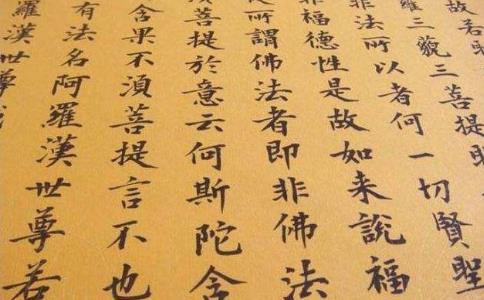 故若
羅三藐三菩提耶
非法所以者何一切賢聖
非福德性是故如来說福
所謂佛法者即非佛法
須菩提於意云何斯陀含
含果不須菩提言不也
有法名阿羅漢世尊若
羅漢世尊